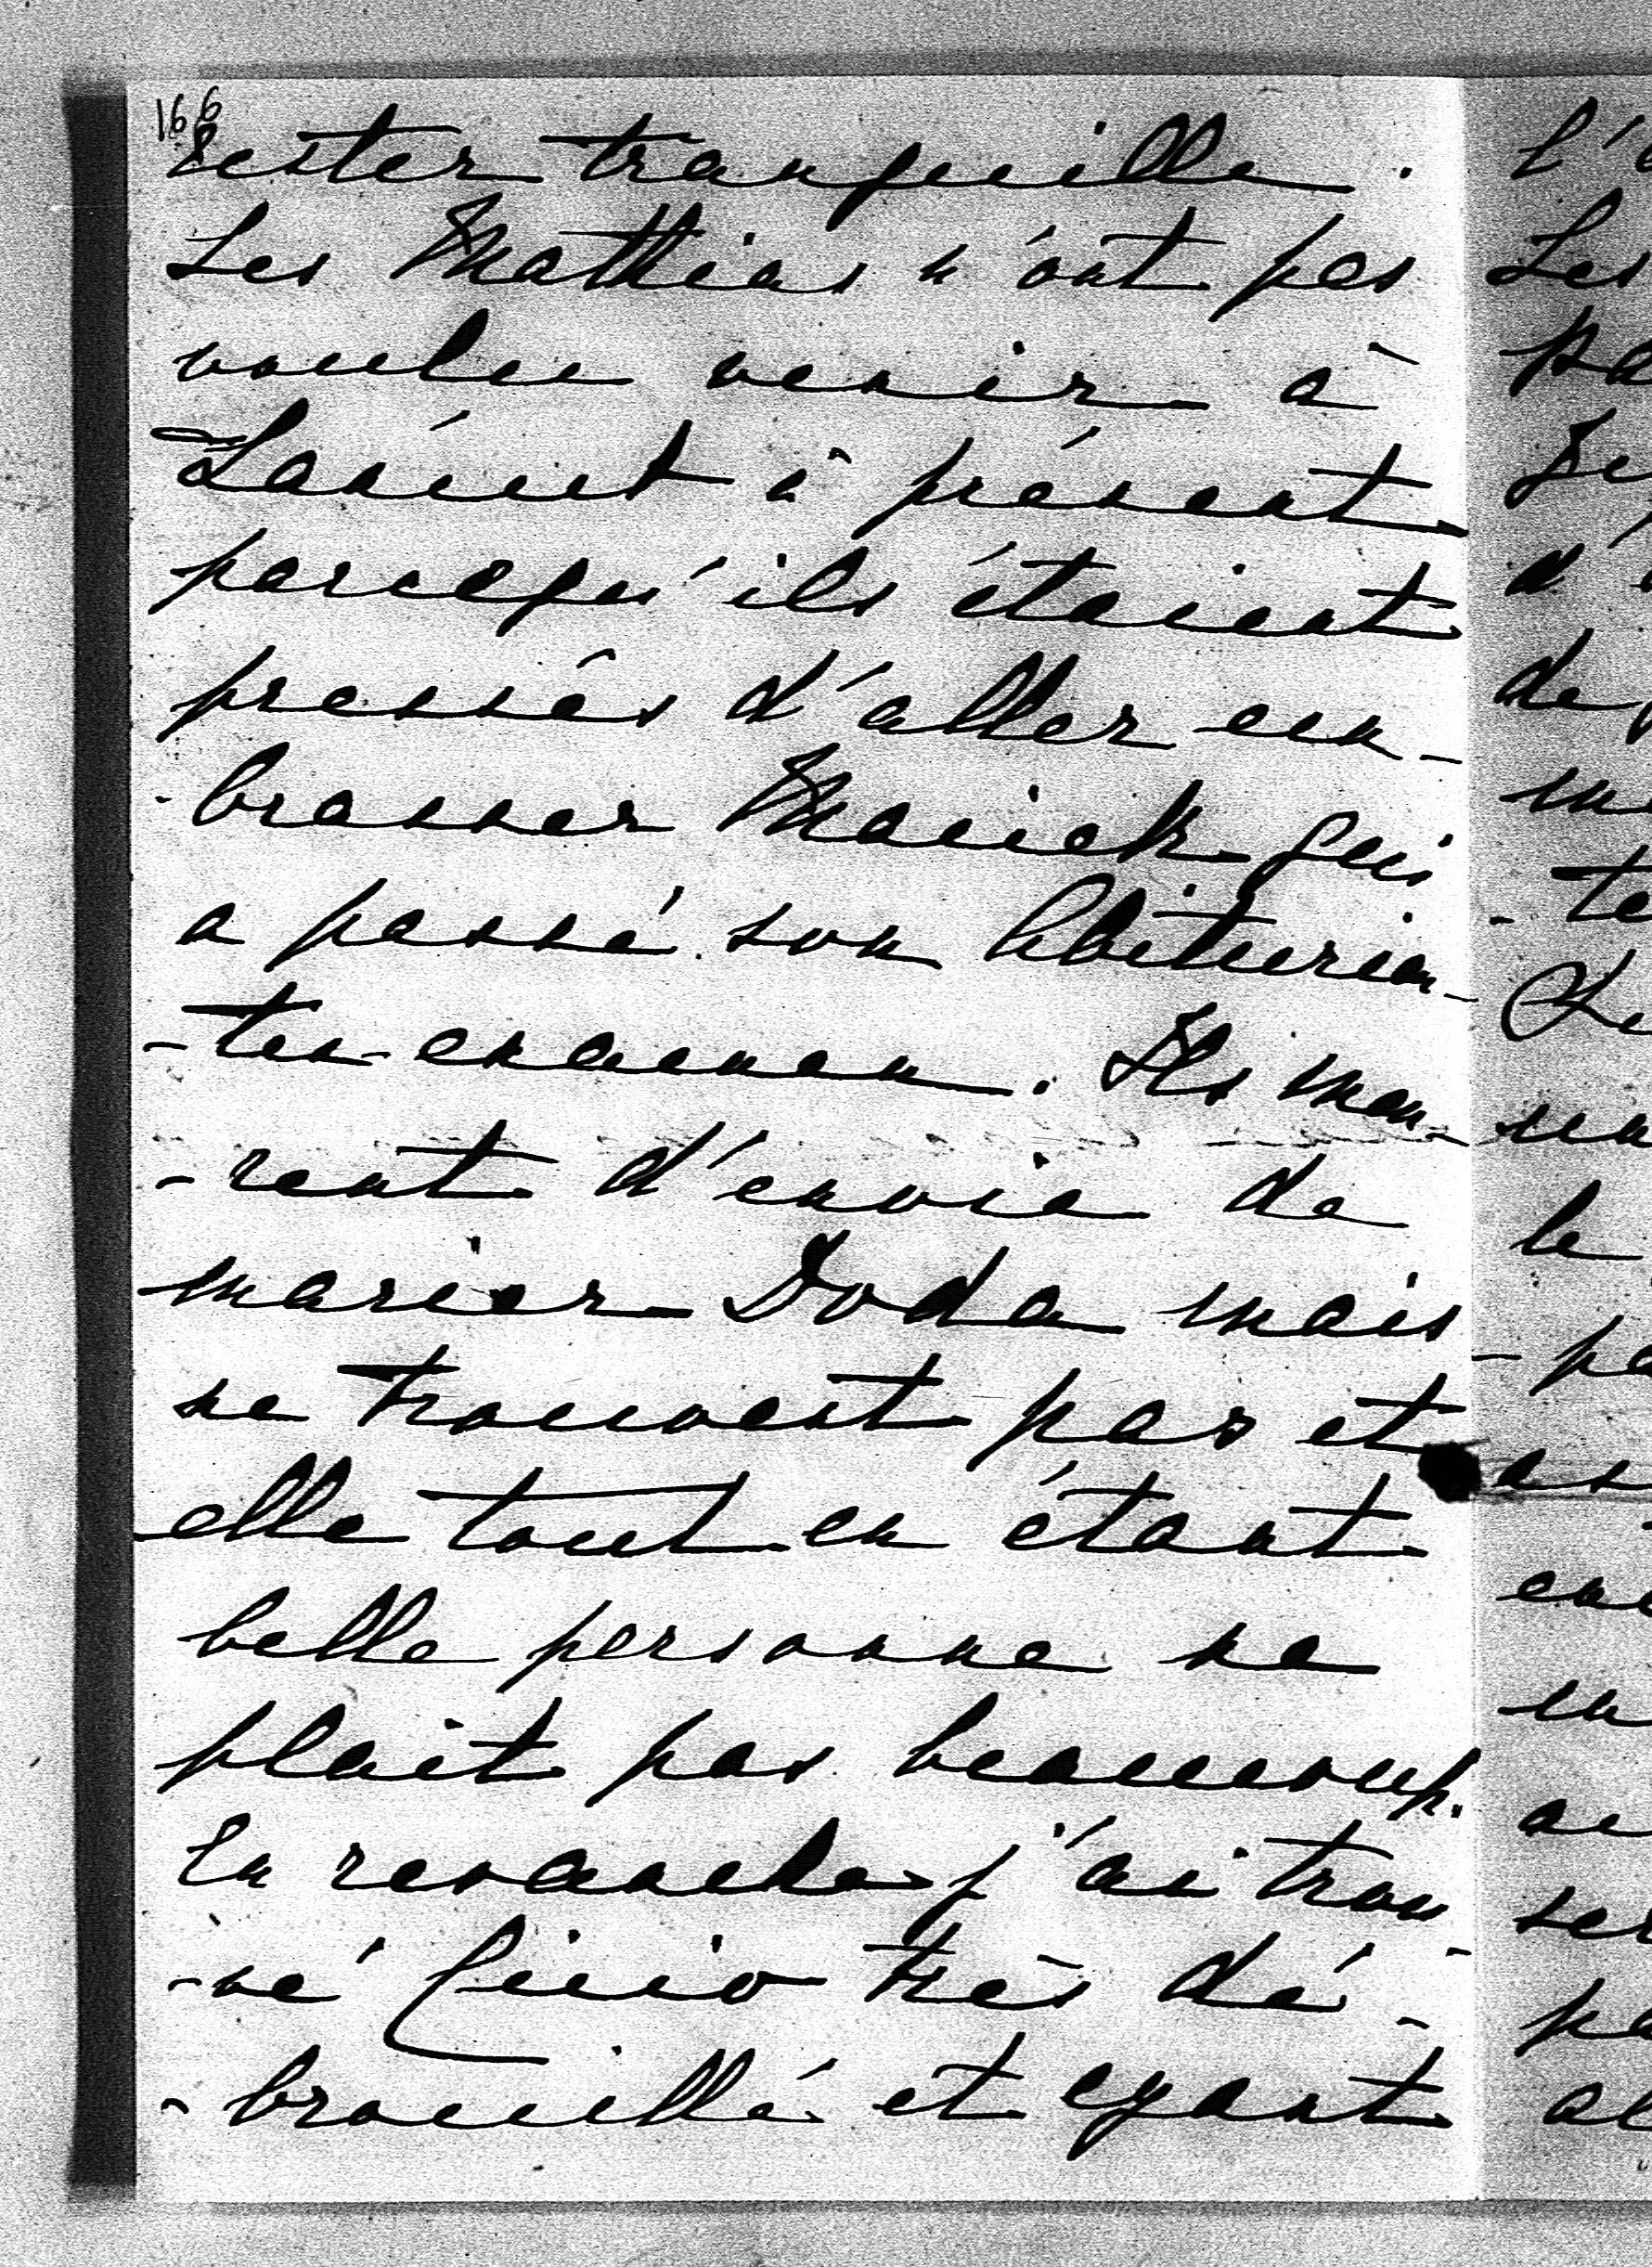 166
rester tranquille.
Les Mathias n'ont pas
voulu venir à
Lańcut à présent
parcequ'ils étaient
pressés d'aller em-
-brasser Maciek qui
a passé son Abiturien-
-ten examen. Ils meu-
-rent d'envie de
marier Doda mais
ne trouvent pas et
elle tout en étant
belle personne ne
plait pas beaucoup.
En revanche j'ai trou-
-vé très dé-
-brouillé et ayant